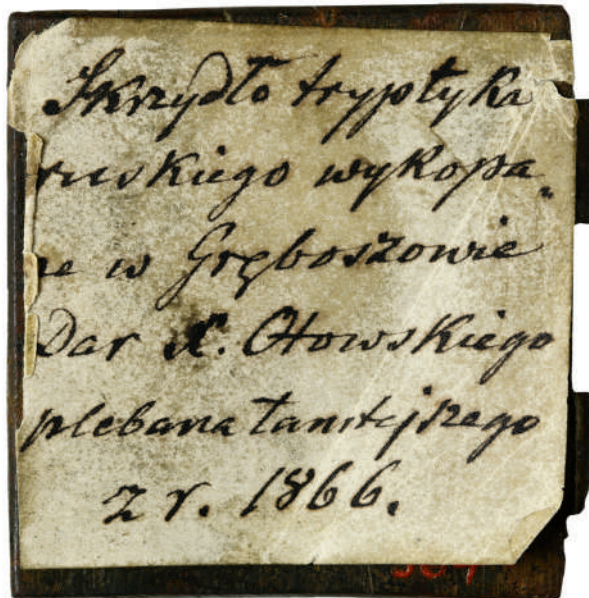 Skrzydło tryptyka
ruskiego wykopa„
ne w Gręboszowie
Dar X. Otowskiego
plebana tamtejszego
z r. 1866.